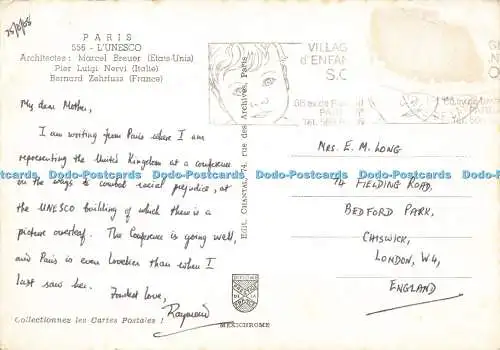 25/8/68
PARIS
556 - L'UNESCO
Architectes : Marcel Breuer (Etats-Unis)
Pier Luigi Nervi (Italie)
Bernard Zehrfuss (France)
My dear Mother,
I am writing from Paris where I am
representing the United Kingdom at a conference
on the ways to combat racial prejudice, at
the UNESCO building of which there is a
picture overleaf. The Conference is going well,
and Paris is even lovelier than when I
last saw her. Fondest love,
Raymond
Collectionnez les Cartes Postales !
EDIT. CHANTAL, 74, rue des Archives, Paris
MEXICHROME
VILLAG
d'ENFAN
S.O
PARI
Mrs. E. M. LONG
74 FIELDING ROAD,
BEDFORD PARK,
CHISWICK,
LONDON, W4,
ENGLAND
Dodo-Postcards Dodo-Postcards Dodo-Postcards Dodo-Postcards Dodo-Postcards
Dodo-Postcards Dodo-Postcards Dodo-Postcards Dodo-Postcards Dodo-Postcards